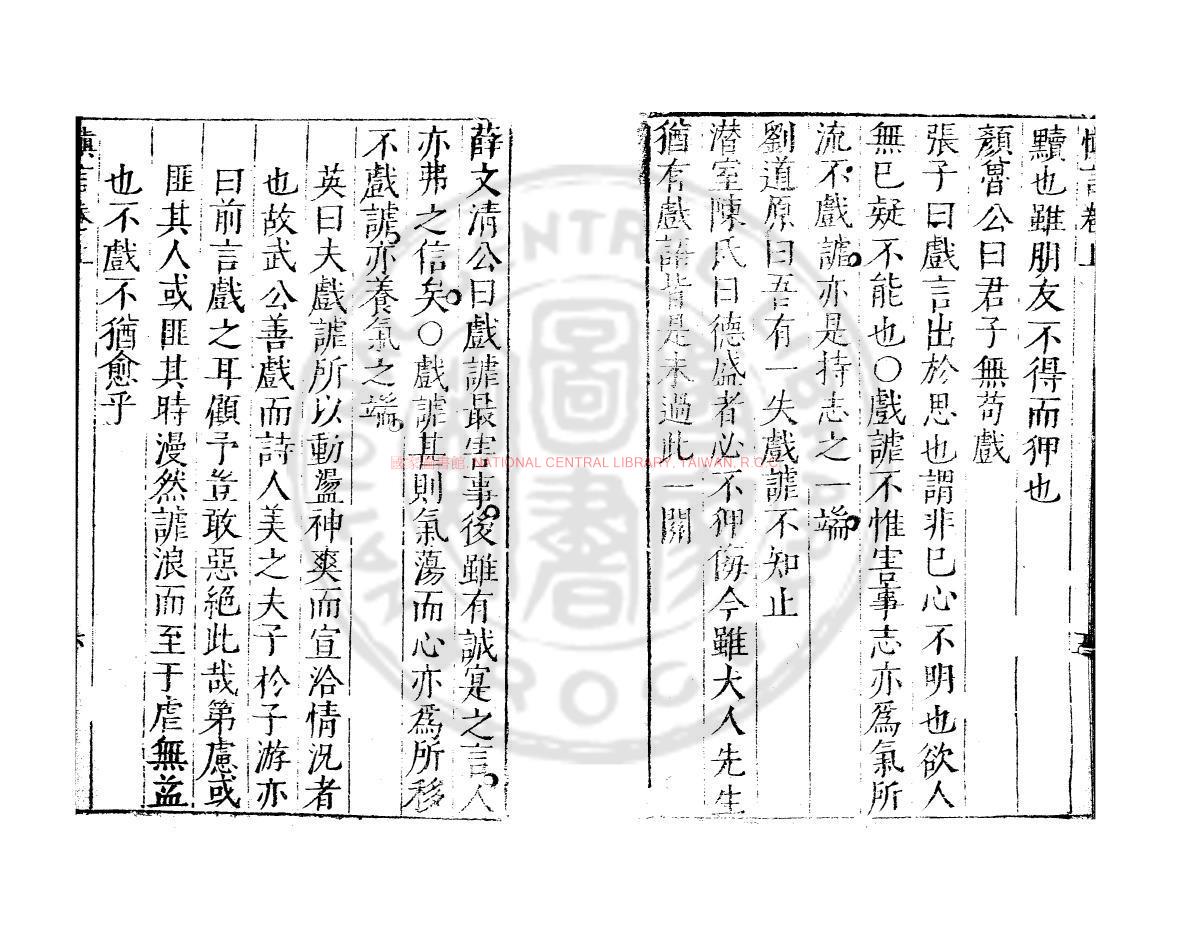 慎言卷上
黷也雖朋友不得而狎也
顏魯公曰君子無苟戲
張子曰戲言出於思也謂非己心不明也欲人
無已疑不能也○戲謔不惟害事志亦為氣所
流不戲謔亦是持志之一端
劉道原曰吾有一失戲謔不知止
潛室陳氏曰德盛者必不狎侮今雖大人先生
猶有戲語皆是未過此一關
薛文清公曰戲謔最害事後雖有誠寔之言人
亦弗之信矣○戲謔甚則氣蕩而心亦為所移
不戲謔亦養氣之端
英曰夫戲謔所以動盪神爽而宣洽情況者
也故武公善戲而詩人美之夫子於子游亦
曰前言戲之耳顧予豈敢惡絕此哉第慮或
匪其人或匪其時漫然謔浪而至于虐無益
也不戲不猶愈乎
慎言卷上
六
國家圖書館, NATIONAL CENTRAL LIBRARY, TAIWAN, R.O.C